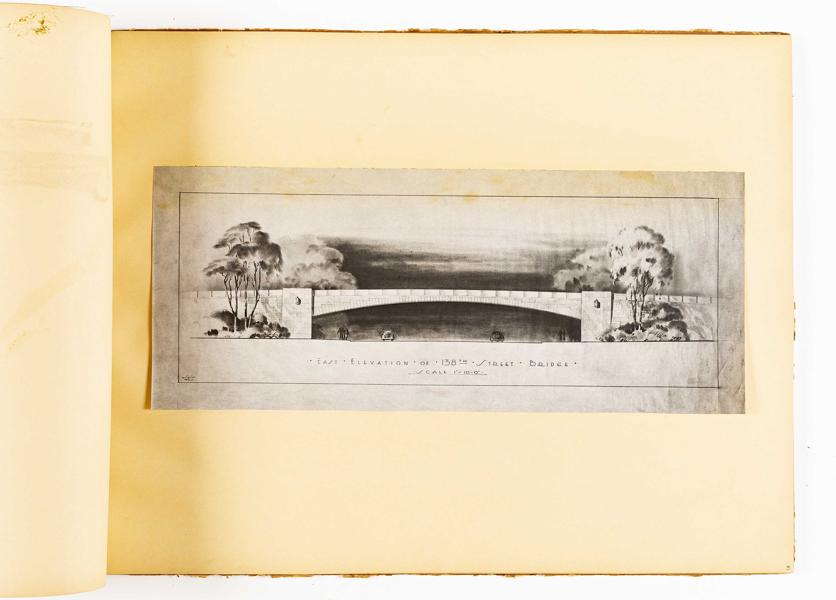 · EAST · ELEVATION · OF · 138TH · STREET · BRIDGE ·
SCALE 1"=10'-0"